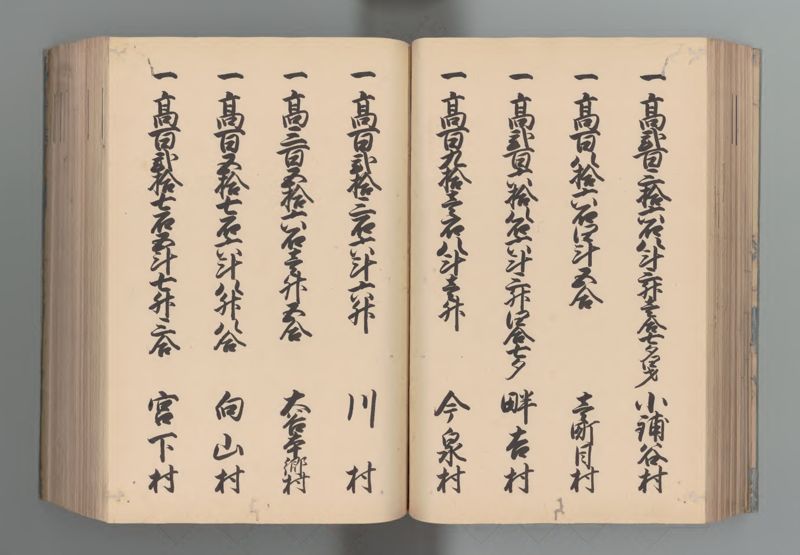 一 高弐百三拾六石八斗三升壱合七夕 小鋪谷村
一 高百八拾六石四斗五合 壱町目村
一 高弐百六拾八石六斗三升四合七夕 畔吉村
一 高百九拾壱石八斗壱升 今泉村
一 高百弐拾三石六斗六升 川村
一 高三百五拾六石壱升五合 大谷本郷村
一 高百五拾七石六斗八升八合 向山村
一 高百弐拾七石五斗七升三合 宮下村